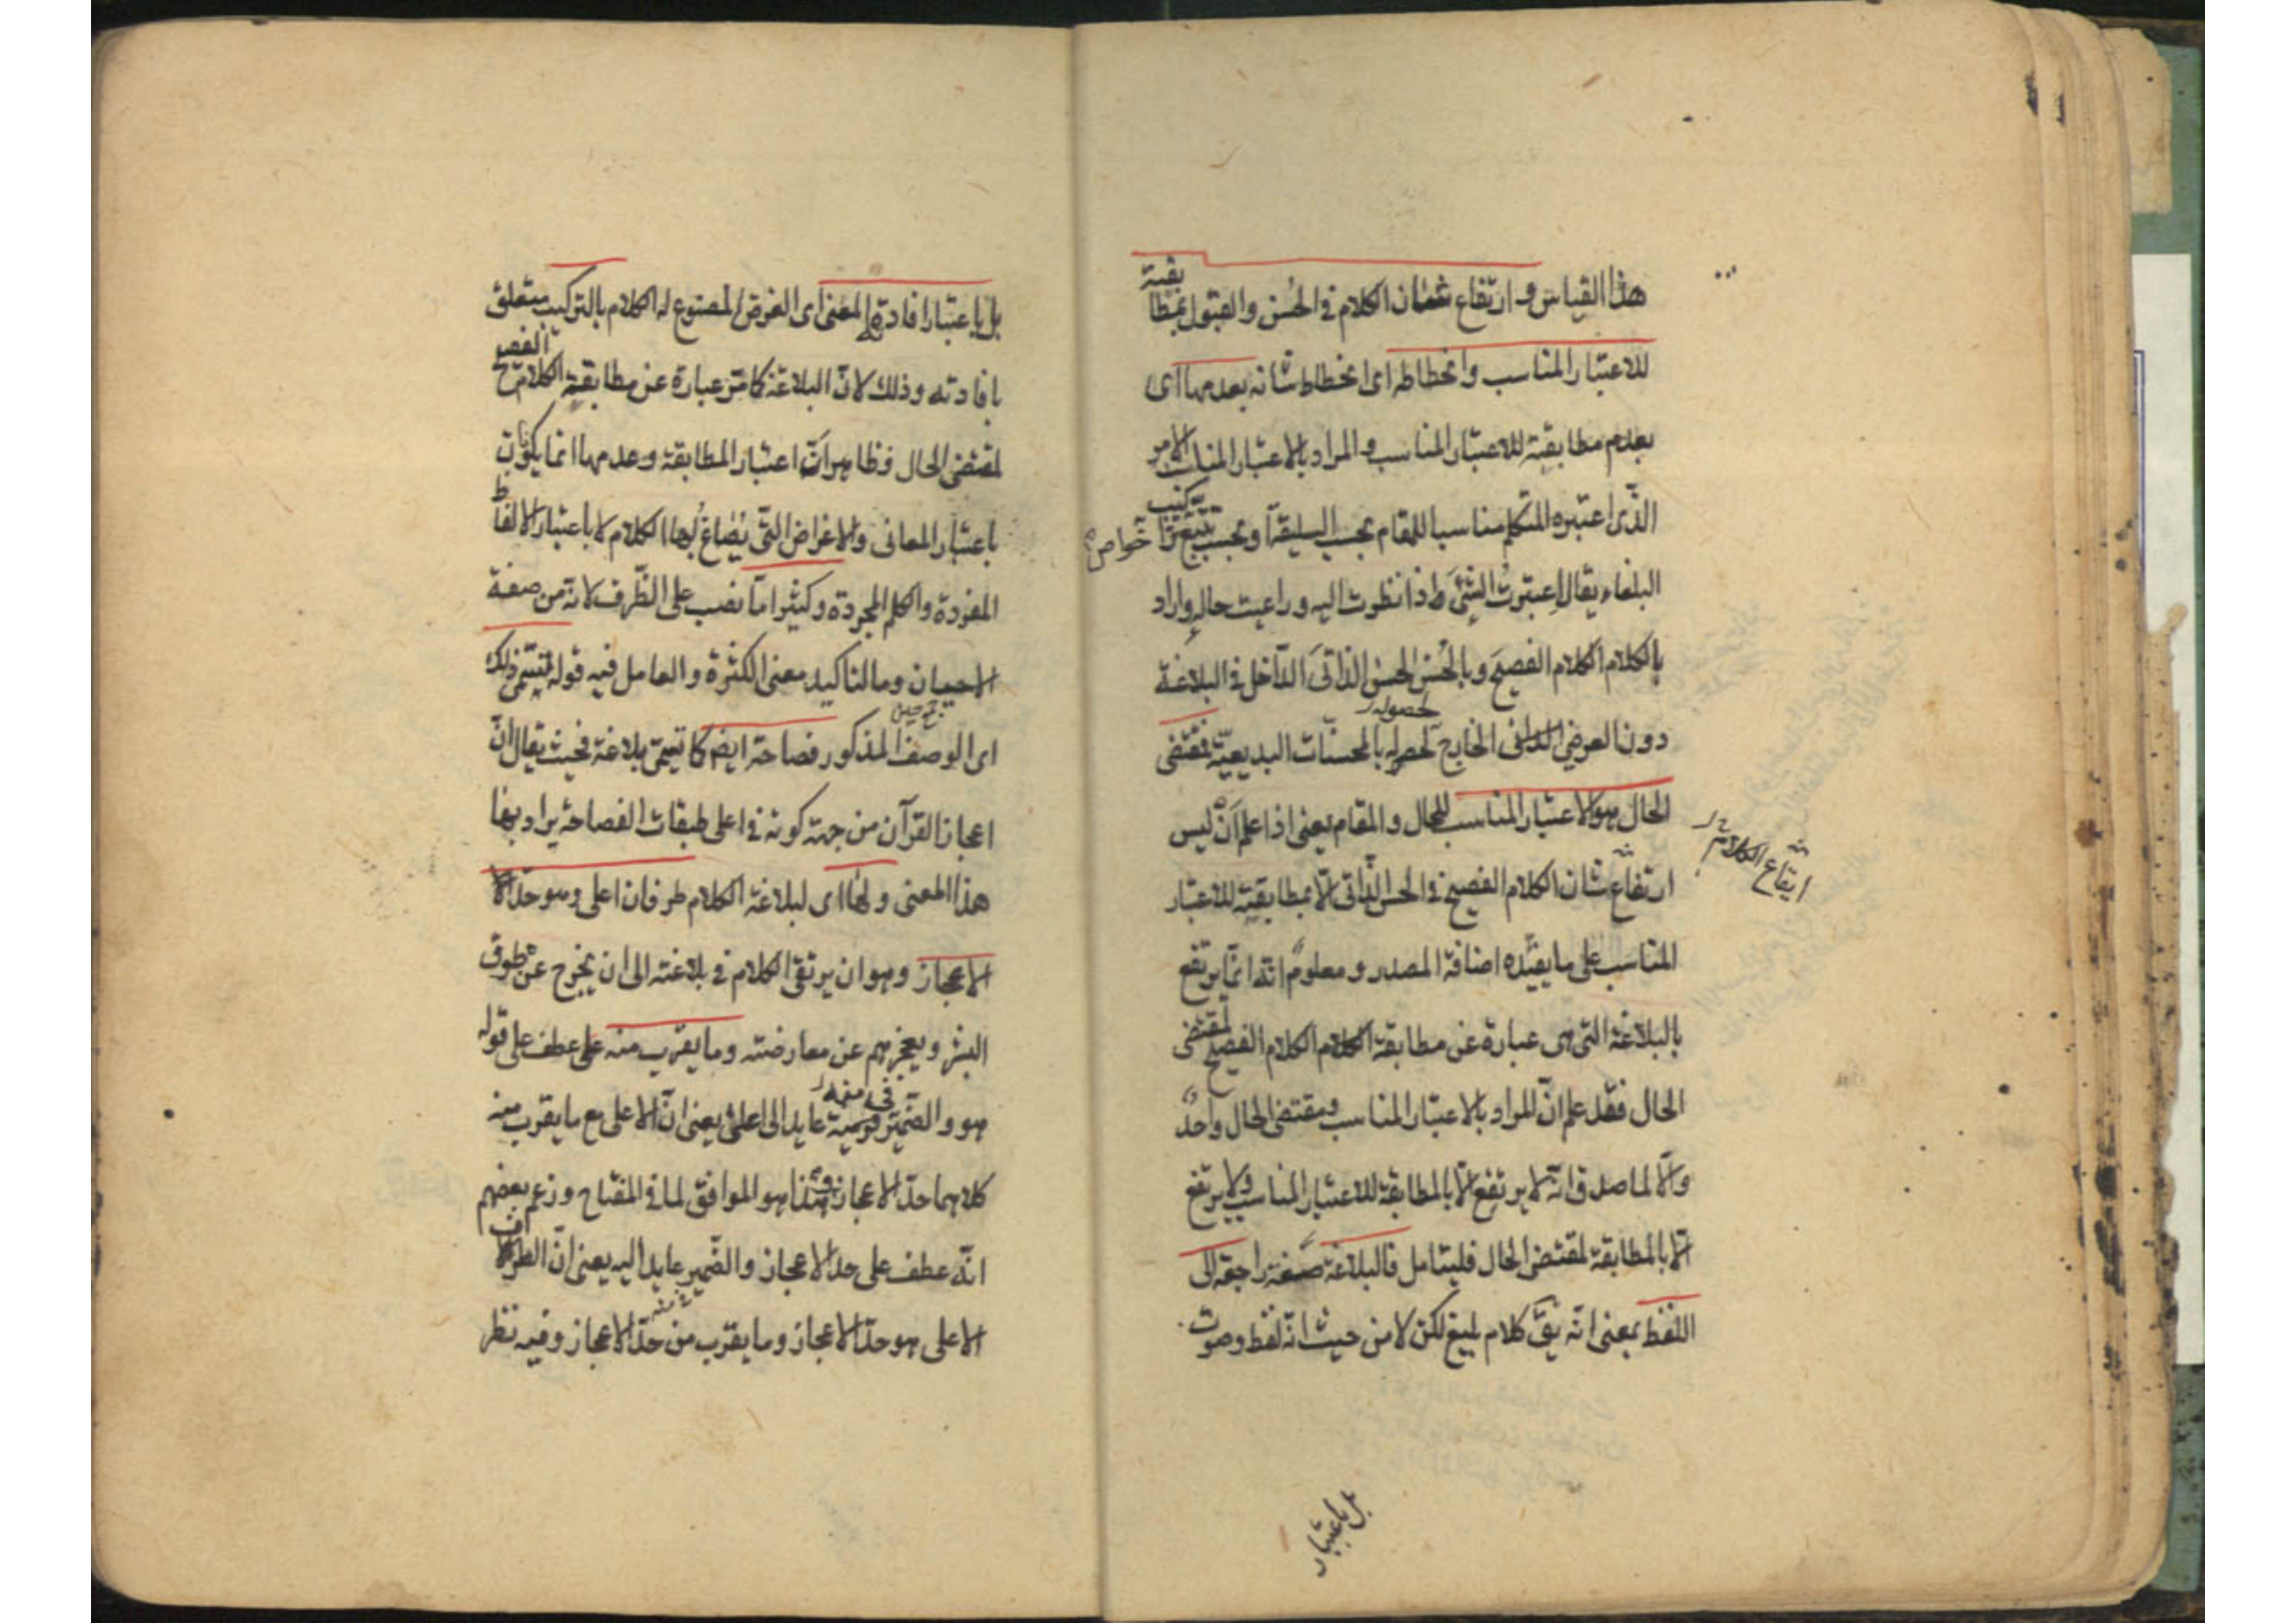 هذا القياس وارتفاع شان الكلام في الحسن والقبول بمطابقته
للاعتبار المناسب وانحطاطه اى انحطاط شانه بعدمها اى
بعدم مطابقته للاعتبار المناسب والمراد بالاعتبار المناسب الامر
الذى اعتبره المتكلم مناسبا للمقام بحسب السليقة او بحسب تتبع خواص تراكيب
البلغاء يقال اعتبرت الشئ اذا نظرت اليه وراعيت حاله واراد
بالكلام الكلام الفصيح وبالحسن الحسن الذاتى الداخل في البلاغة
دون العرضى الخارج لحصوله بالمحسنات البديعية فمقتضى
الحال هو الاعتبار المناسب للحال والمقام يعنى اذا علم ان ليس
ارتفاع شان الكلام الفصيح في الحسن الذاتى الا بمطابقته للاعتبار
ارتفاع الكلام
المناسب على ما يفيده اضافة المصدر ومعلوم انه انما يرتفع
بالبلاغة التى هى عبارة عن مطابقة الكلام الفصيح لمقتضى
الحال فقد علم ان المراد بالاعتبار المناسب ومقتضى الحال واحد
والا لما صدق انه لا يرتفع الا بالمطابقة للاعتبار المناسب ولا يرتفع
الا بالمطابقة لمقتضى الحال فليتامل فالبلاغة صفة راجعة الى
اللفظ بمعنى انه يق كلام بليغ لكن لا من حيث انه لفظ وصوت
بل باعتبار
بل باعتبار افادته المعنى اى الغرض المصنوع له الكلام بالتركيب متعلق
بافادته وذلك لان البلاغة كما مر عبارة عن مطابقة الكلام الفصيح
لمقتضى الحال فظاهر ان اعتبار المطابقة وعدمها انما يكون
باعتبار المعانى والاغراض التى يصاغ لها الكلام لا باعتبار الالفاظ
المفردة والكلم المجردة وكثيرا ما نصب على الظرف لانه من صفة
الاحيان وما لتاكيد معنى الكثرة والعامل فيه قوله يسمى ذلك
اى الوصف المذكور فصاحة ايضا كما تسمى بلاغة فحيث يقال ان
اعجاز القرآن من جهة كونه في اعلى طبقات الفصاحة يراد بها
هذا المعنى ولها اى لبلاغة الكلام طرفان اعلى وهو حد
الاعجاز وهو ان يرتقى الكلام في بلاغته الى ان يخرج عن طوق
البشر ويعجزهم عن معارضته وما يقرب منه عطف على قوله
هو والضمير في منه عايد الى اعلى يعنى ان الاعلى مع ما يقرب منه
كلاهما حد الاعجاز وهذا هو الموافق لما في المفتاح وزعم بعضهم
انه عطف على حد الاعجاز والضمير عايد اليه يعنى ان الطرف
الاعلى هو حد الاعجاز وما يقرب من حد الاعجاز وفيه نظر